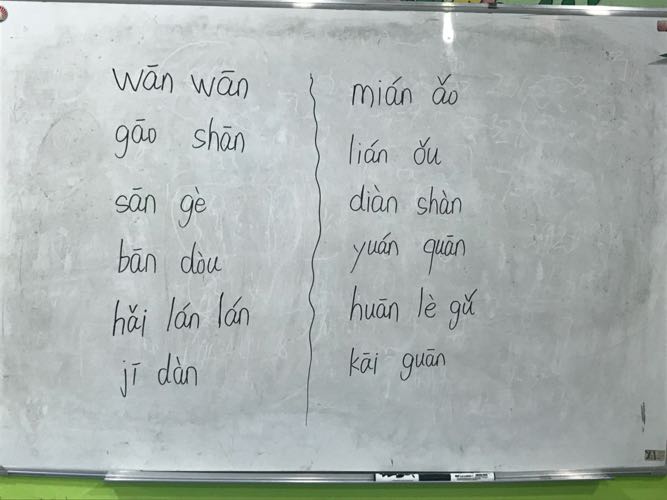 wān wān
gāo shān
sān gè
bān dòu
hǎi lán lán
jī dàn
mián ǎo
lián ǒu
diàn shàn
yuán quān
huān lè gǔ
kāi guān